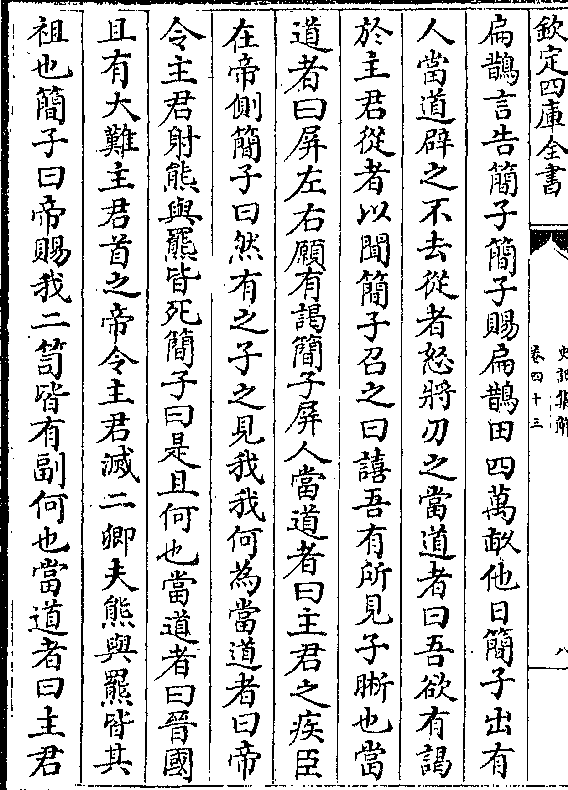 欽定四庫全書
史記集解
卷四十三
八
扁鵲言告簡子簡子賜扁鵲田四萬畝他日簡子出有
人當道辟之不去從者怒將刃之當道者曰吾欲有謁
於主君從者以聞簡子召之曰譆吾有所見子晣也當
道者曰屏左右願有謁簡子屏人當道者曰主君之疾臣
在帝側簡子曰然有之子之見我我何為當道者曰帝
令主君射熊與羆皆死簡子曰是且何也當道者曰晉國
且有大難主君首之帝令主君滅二卿夫熊與羆皆其
祖也簡子曰帝賜我二笥皆有副何也當道者曰主君